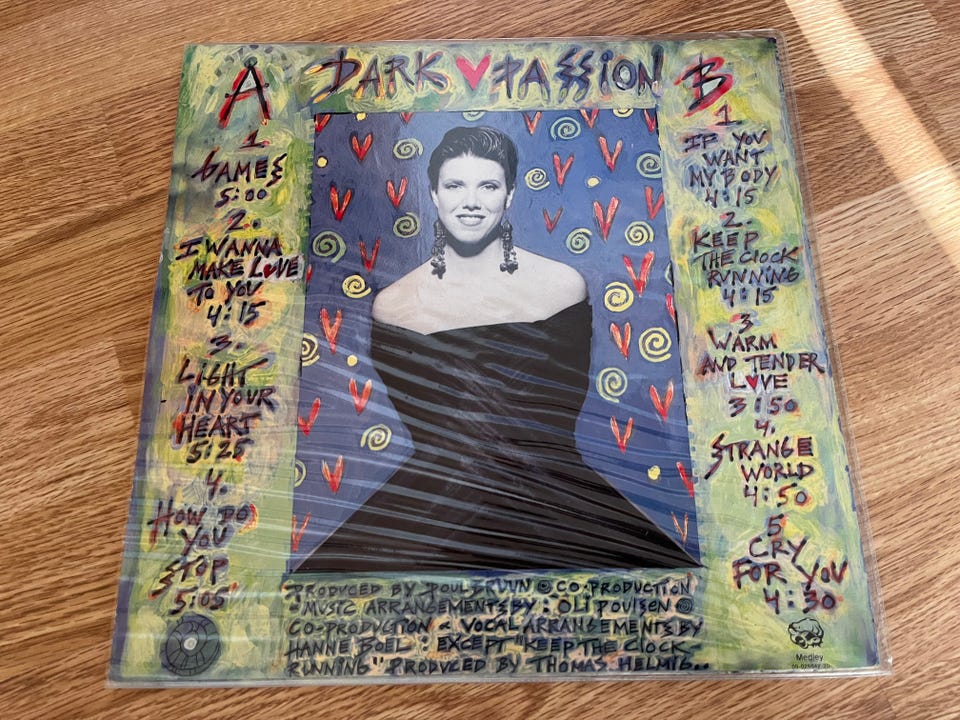 DARK ♥ PASSION
A
1.
GAMES
5:00
2.
I WANNA
MAKE LOVE
TO YOU
4:15
3.
LIGHT
IN YOUR
HEART
5:25
4.
HOW DO
YOU
STOP
5:05"
B
1
IF YOU
WANT
MY BODY
4:15
2.
KEEP
THE CLOCK
RUNNING
4:15
3
WARM
AND TENDER
LOVE
3:50
4.
STRANGE
WORLD
4:50
5
CRY
FOR YOU
4:30
PRODUCED BY POUL BRUUN CO-PRODUCTION
MUSIC ARRANGEMENTS BY: OLI POULSEN
CO-PRODUCTION & VOCAL ARRANGEMENTS BY
HANNE BOEL: EXCEPT "KEEP THE CLOCK-
RUNNING" PRODUCED BY THOMAS HELMIG..
Medley